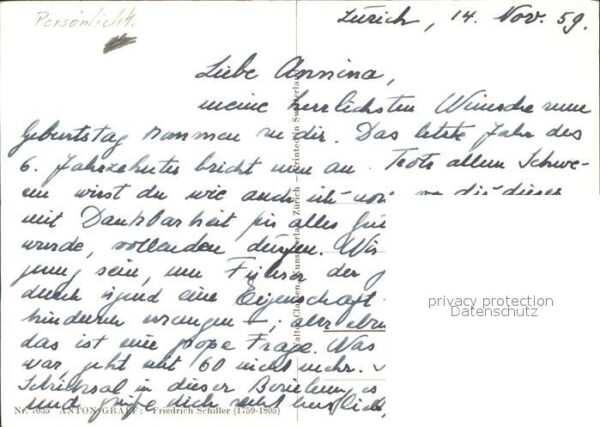 Persönlichk.
Zürich, 14. Nov. 59.
Liebe Annina,
meine herzlichsten Wünsche zum
Geburtstag kommen zu dir. Das letzte Jahr des
6. Jahrzehntes bricht nun an. Trotz allem Schwe-
ren wirst du wie auch ich
mit Dankbarkeit für alles
wurde, vollenden dürfen. Wir
jung sein, um Führer der
durch irgend eine Eigenschaft
; aber eben
das ist eine grosse Frage. Was
war, geht mit 60 nicht mehr.
Schicksal in dieser Beziehung
und grüsse dich recht herzlich,
privacy protection
Datenschutz
Printed in Switzerland
Kunstverlag Zürich
Nr. 7035 ANTON GRAFF: Friedrich Schiller (1759-1805)